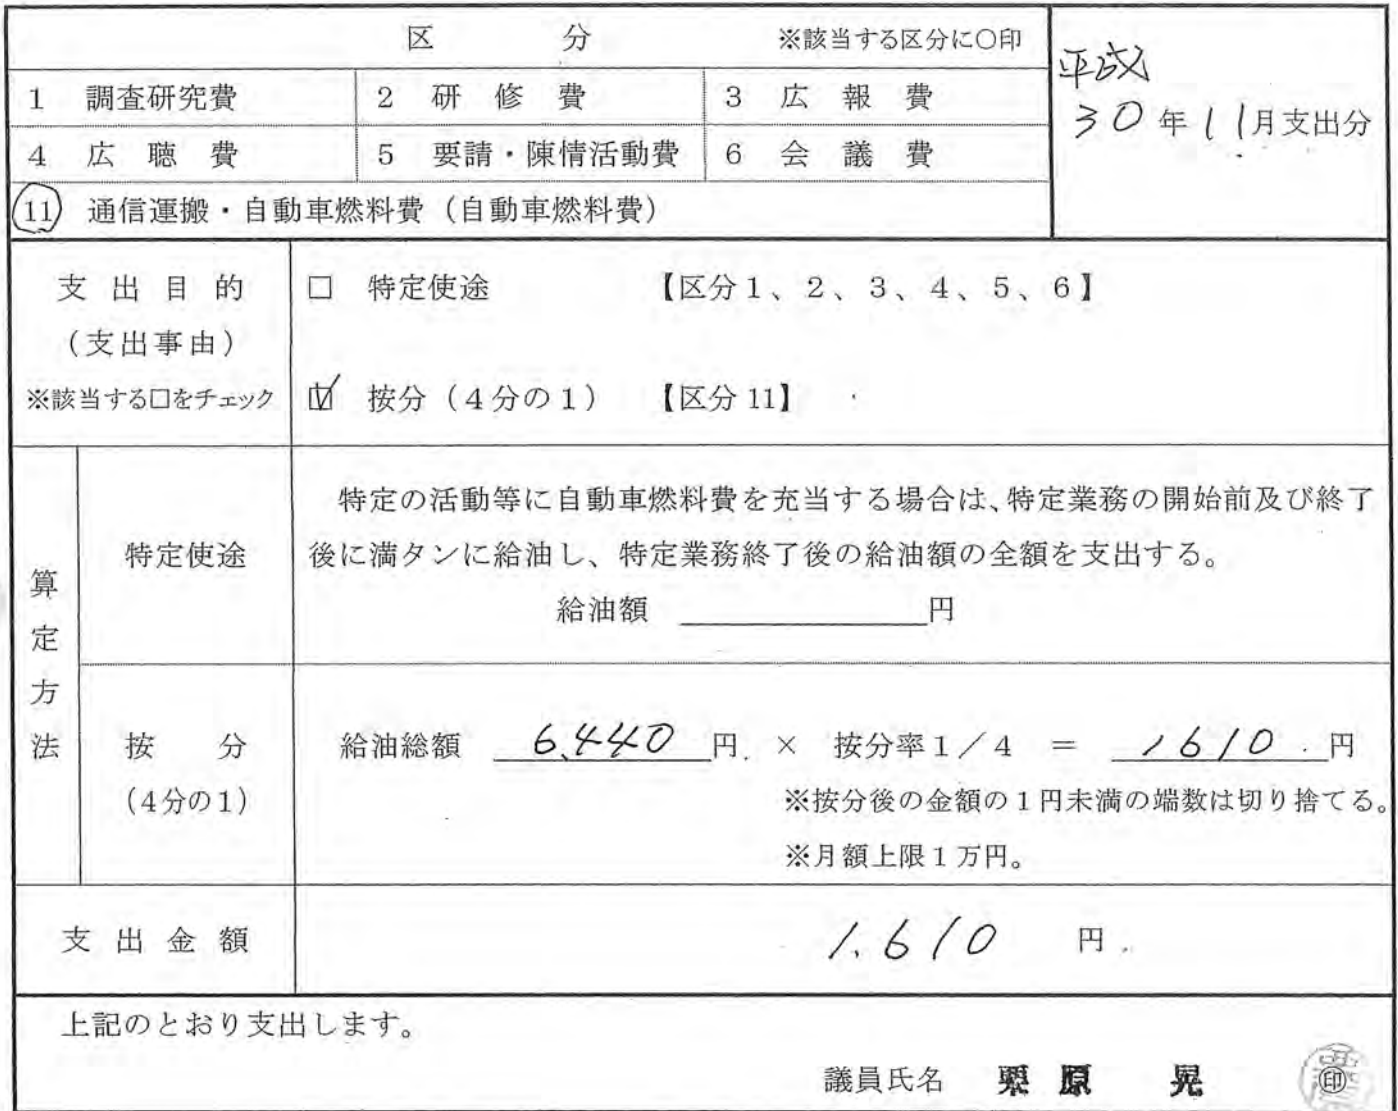 区 分 ※該当する区分に○印
平成
30年11月支出分
1 調査研究費 2 研修費 3 広報費
4 広聴費 5 要請・陳情活動費 6 会議費
11 通信運搬・自動車燃料費（自動車燃料費）
支出目的
（支出事由）
※該当する□をチェック
□ 特定使途 【区分1、2、3、4、5、6】
☑ 按分（4分の1） 【区分11】
算定方法
特定使途
特定の活動等に自動車燃料費を充当する場合は、特定業務の開始前及び終了
後に満タンに給油し、特定業務終了後の給油額の全額を支出する。
給油額 円
按分
（4分の1）
給油総額 6,440 円 × 按分率1／4 ＝ 1610 円
※按分後の金額の1円未満の端数は切り捨てる。
※月額上限1万円。
支出金額 1,610 円
上記のとおり支出します。
議員氏名 栗原 晃 ㊞